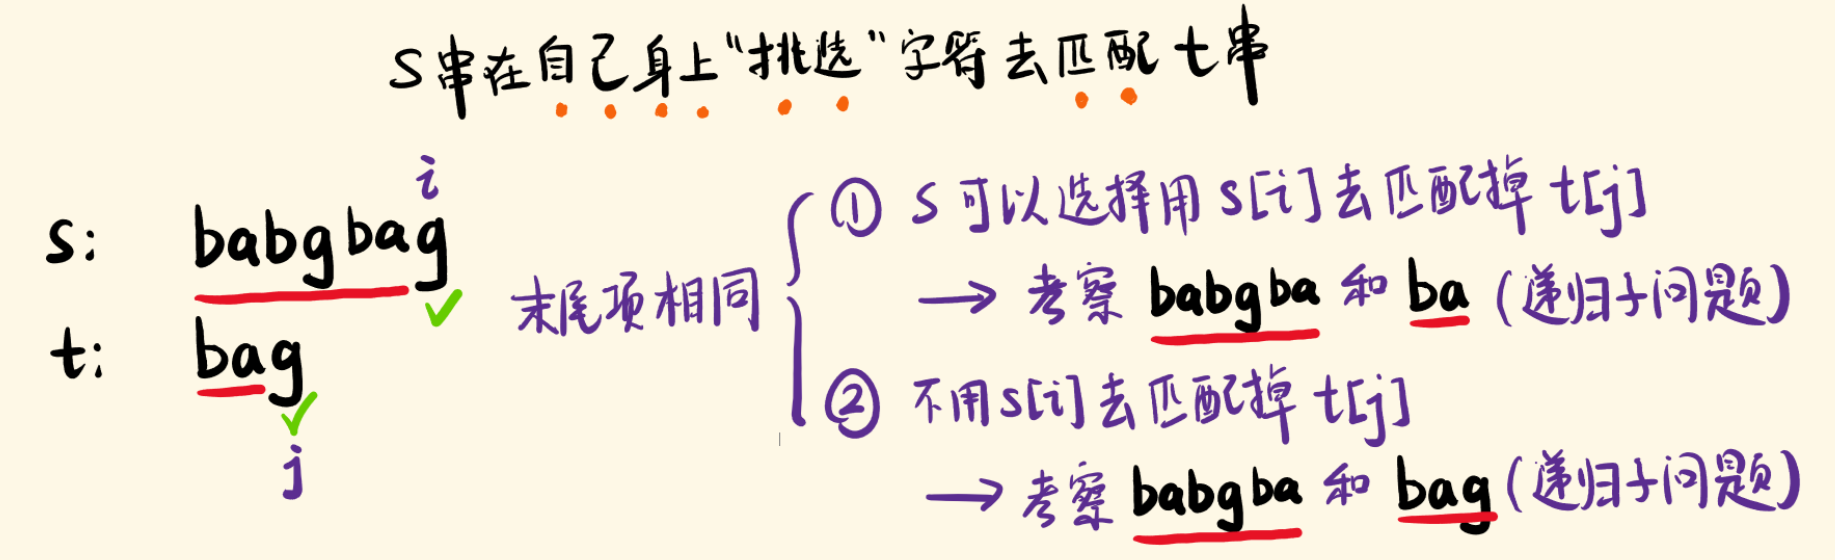 S串在自己身上“挑选”字符去匹配t串
i
s: babgbag
t: bag
j
末尾项相同
① S可以选择用s[i]去匹配掉t[j]
→ 考察 babgba 和 ba (递归子问题)
② 不用s[i]去匹配掉t[j]
→ 考察 babgba 和 bag (递归子问题)